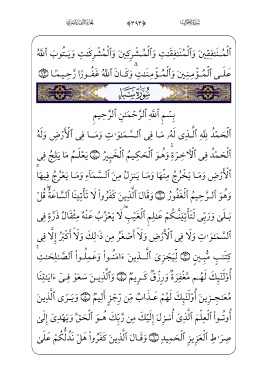 ٱلْمُنَٰفِقِينَ وَٱلْمُنَٰفِقَٰتِ وَٱلْمُشْرِكِينَ وَٱلْمُشْرِكَٰتِ وَيَتُوبَ ٱللَّهُ
عَلَى ٱلْمُؤْمِنِينَ وَٱلْمُؤْمِنَٰتِ وَكَانَ ٱللَّهُ غَفُورًا رَّحِيمًۢا
سُورَةُ سَبَإٍ
بِسْمِ ٱللَّهِ ٱلرَّحْمَٰنِ ٱلرَّحِيمِ
ٱلْحَمْدُ لِلَّهِ ٱلَّذِى لَهُۥ مَا فِى ٱلسَّمَٰوَٰتِ وَمَا فِى ٱلْأَرْضِ وَلَهُ
ٱلْحَمْدُ فِى ٱلْءَاخِرَةِ وَهُوَ ٱلْحَكِيمُ ٱلْخَبِيرُ يَعْلَمُ مَا يَلِجُ فِى
ٱلْأَرْضِ وَمَا يَخْرُجُ مِنْهَا وَمَا يَنزِلُ مِنَ ٱلسَّمَآءِ وَمَا يَعْرُجُ فِيهَا
وَهُوَ ٱلرَّحِيمُ ٱلْغَفُورُ وَقَالَ ٱلَّذِينَ كَفَرُوا۟ لَا تَأْتِينَا ٱلسَّاعَةُ قُلْ
بَلَىٰ وَرَبِّى لَتَأْتِيَنَّكُمْ عَٰلِمِ ٱلْغَيْبِ لَا يَعْزُبُ عَنْهُ مِثْقَالُ ذَرَّةٍ فِى
ٱلسَّمَٰوَٰتِ وَلَا فِى ٱلْأَرْضِ وَلَآ أَصْغَرُ مِن ذَٰلِكَ وَلَآ أَكْبَرُ إِلَّا فِى
كِتَٰبٍ مُّبِينٍ لِّيَجْزِىَ ٱلَّذِينَ ءَامَنُوا۟ وَعَمِلُوا۟ ٱلصَّٰلِحَٰتِ
أُو۟لَٰٓئِكَ لَهُم مَّغْفِرَةٌ وَرِزْقٌ كَرِيمٌ وَٱلَّذِينَ سَعَوْ فِىٓ ءَايَٰتِنَا
مُعَٰجِزِينَ أُو۟لَٰٓئِكَ لَهُمْ عَذَابٌ مِّن رِّجْزٍ أَلِيمٌ وَيَرَى ٱلَّذِينَ
أُوتُوا۟ ٱلْعِلْمَ ٱلَّذِىٓ أُنزِلَ إِلَيْكَ مِن رَّبِّكَ هُوَ ٱلْحَقَّ وَيَهْدِىٓ إِلَىٰ
صِرَٰطِ ٱلْعَزِيزِ ٱلْحَمِيدِ وَقَالَ ٱلَّذِينَ كَفَرُوا۟ هَلْ نَدُلُّكُمْ عَلَىٰ